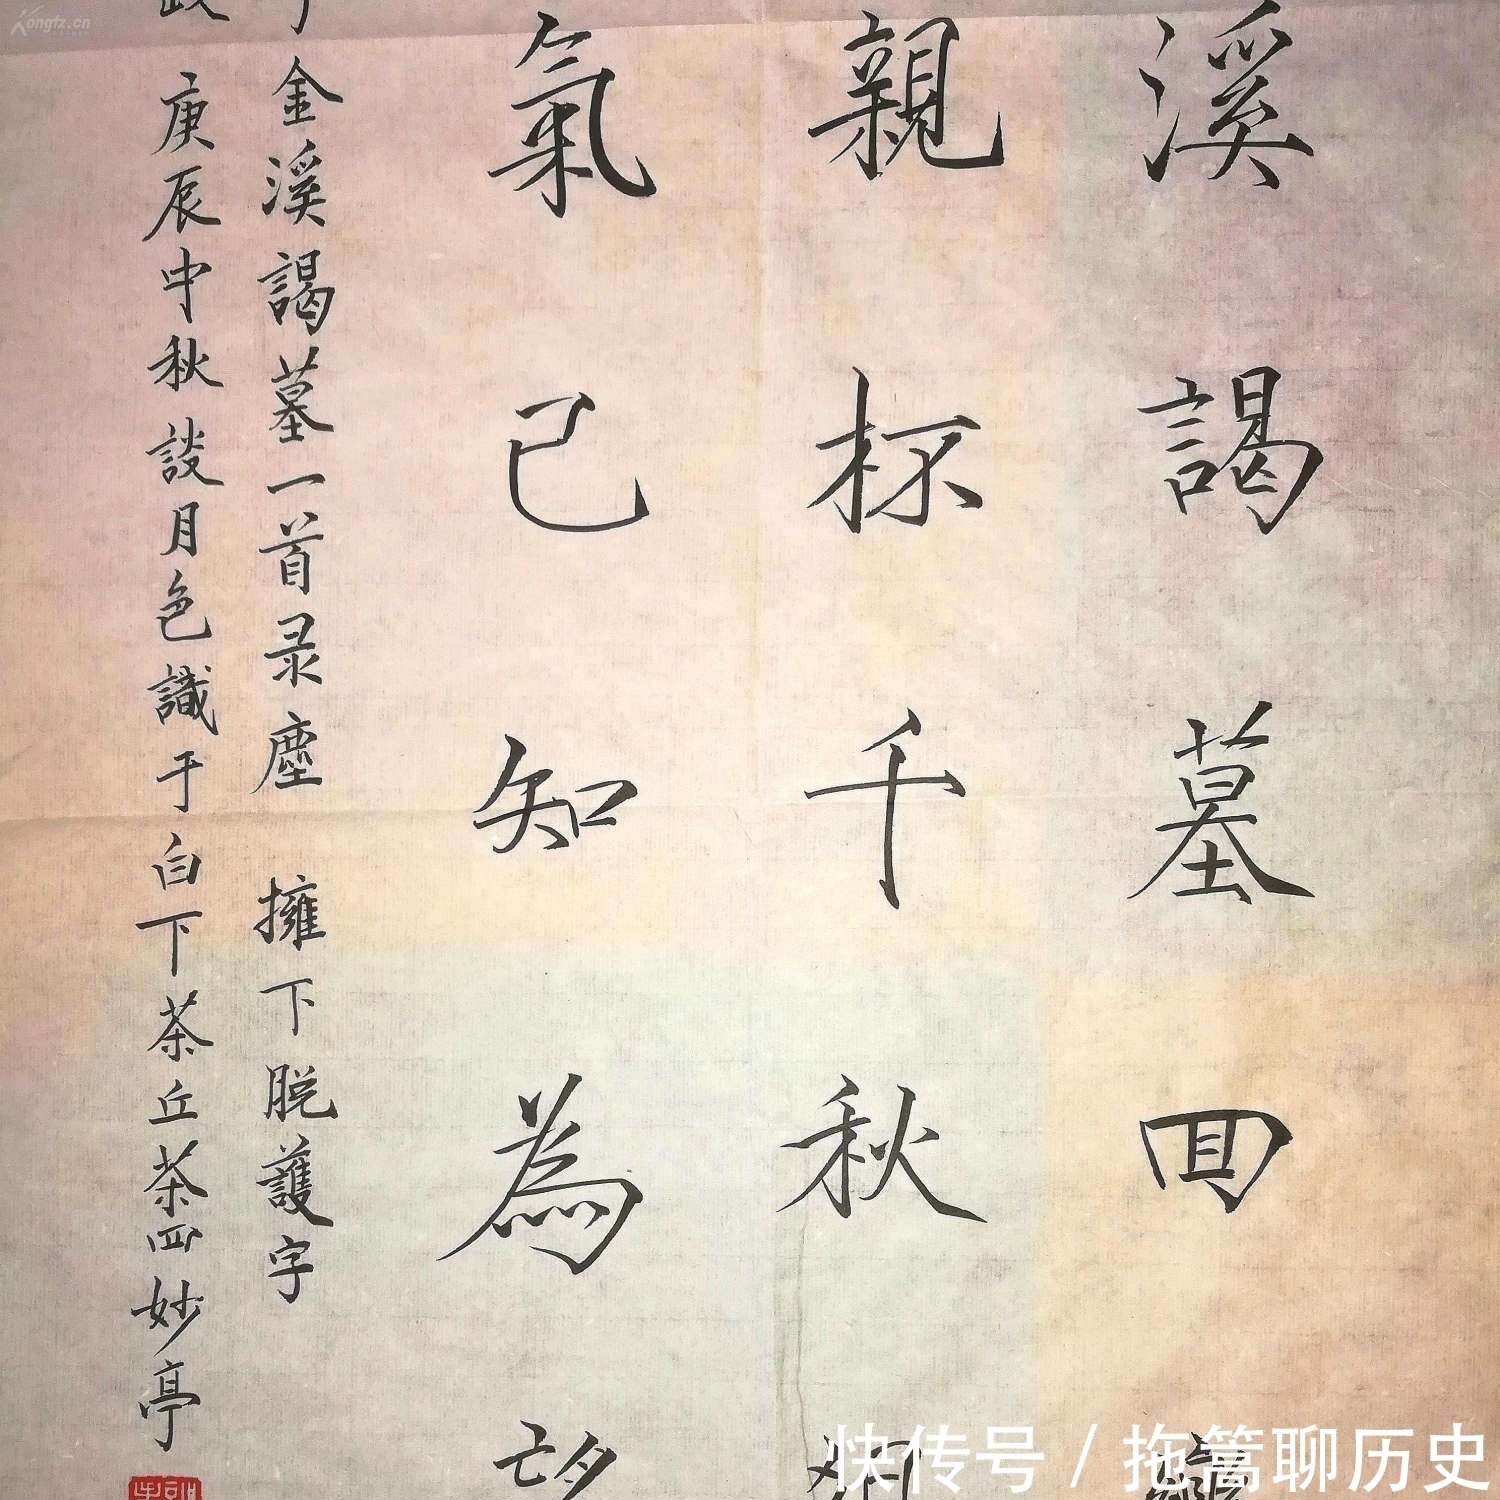 溪謁墓回
親杯千秋
氣已知為望
金溪謁墓一首录塵 擁下脫護字
庚辰中秋談月色識于白下茶丘茶四妙亭
Kongfz.cn
快传号 / 拖篙聊历史